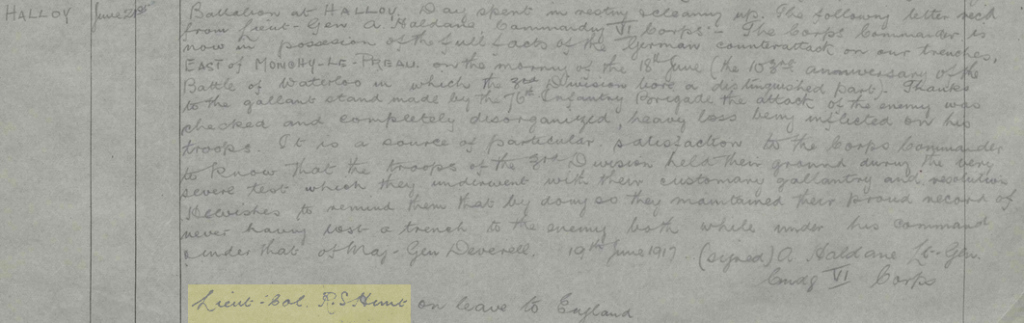 HALLOY June 21st Battalion at HALLOY. Day spent in resting & cleaning up. The following letter recd
from Lieut-Gen A Haldane Commanding VI Corps:- The Corps Commander is
now in possesion of the full facts of the German counterattack on our trenches,
EAST of MONCHY-LE-PREAU on the morning of the 18th June (the 103rd anniversary of the
Battle of Waterloo in which the 3rd Division bore a distinguished part). Thanks
to the gallant stand made by the 76th Infantry Brigade the attack of the enemy was
checked and completely disorganized, heavy loss being inflicted on his
troops. It is a source of particular satisfaction to the Corps Commander
to know that the troops of the 3rd Division held their ground during the very
severe test which they underwent with their customary gallantry and resolution
He wishes to remind them that by doing so they maintained their proud record of
never having lost a trench to the enemy both while under his command
& under that of Maj-Gen Deverell. 19th June 1917 (signed) A Haldane Lt-Gen
Comdg VI Corps
Lieut-Col. R.S. Hunt on leave to England